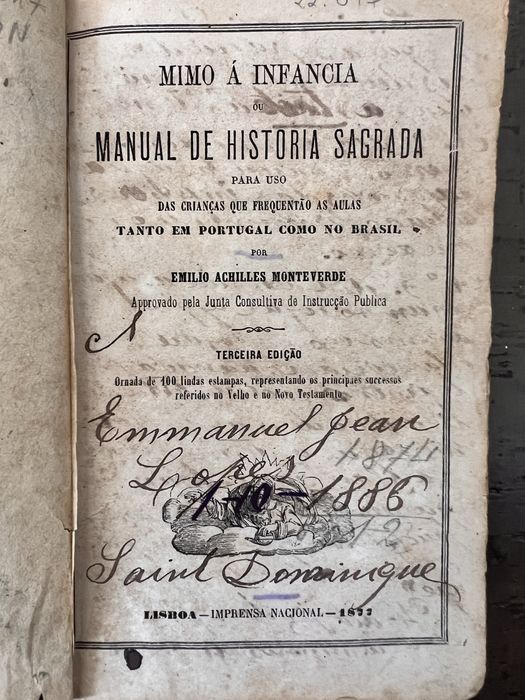 22.
MIMO Á INFANCIA
OU
MANUAL DE HISTORIA SAGRADA
PARA USO
DAS CRIANÇAS QUE FREQUENTÃO AS AULAS
TANTO EM PORTUGAL COMO NO BRASIL
POR
EMILIO ACHILLES MONTEVERDE
Approvado pela Junta Consultiva de Instrucção Publica
TERCEIRA EDIÇÃO
Ornada de 100 lindas estampas, representando os principaes successos
referidos no Velho e no Novo Testamento
Emmanuel Jean
Lopes
1-10-1886
Saint Dominique
LISBOA — IMPRENSA NACIONAL — 1877